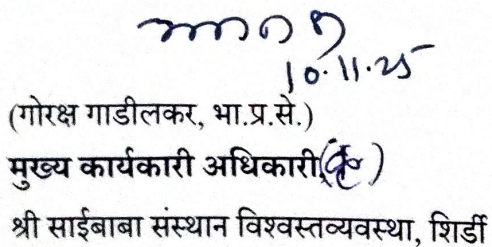 10.11.25
(गोरक्ष गाडीलकर, भा.प्र.से.)
मुख्य कार्यकारी अधिकारी,
श्री साईबाबा संस्थान विश्वस्तव्यवस्था, शिर्डी